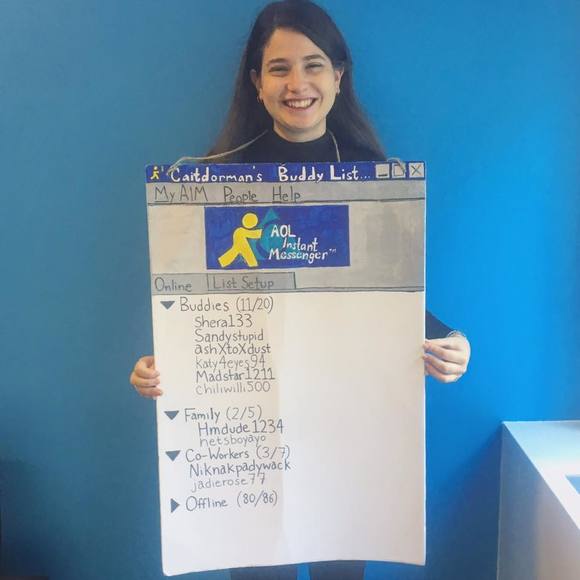 Caitdorman's Buddy List...
My AIM People Help
AOL
Instant
Messenger™
Online List Setup
Buddies (11/20)
Shera133
Sandystupid
ashXtoXdust
katy4eyes94
Madstar1211
chiliwilli500
Family (2/5)
Hmdude1234
hetsboyayo
Co-Workers (3/7)
Niknakpadywack
jadierose77
Offline (80/86)